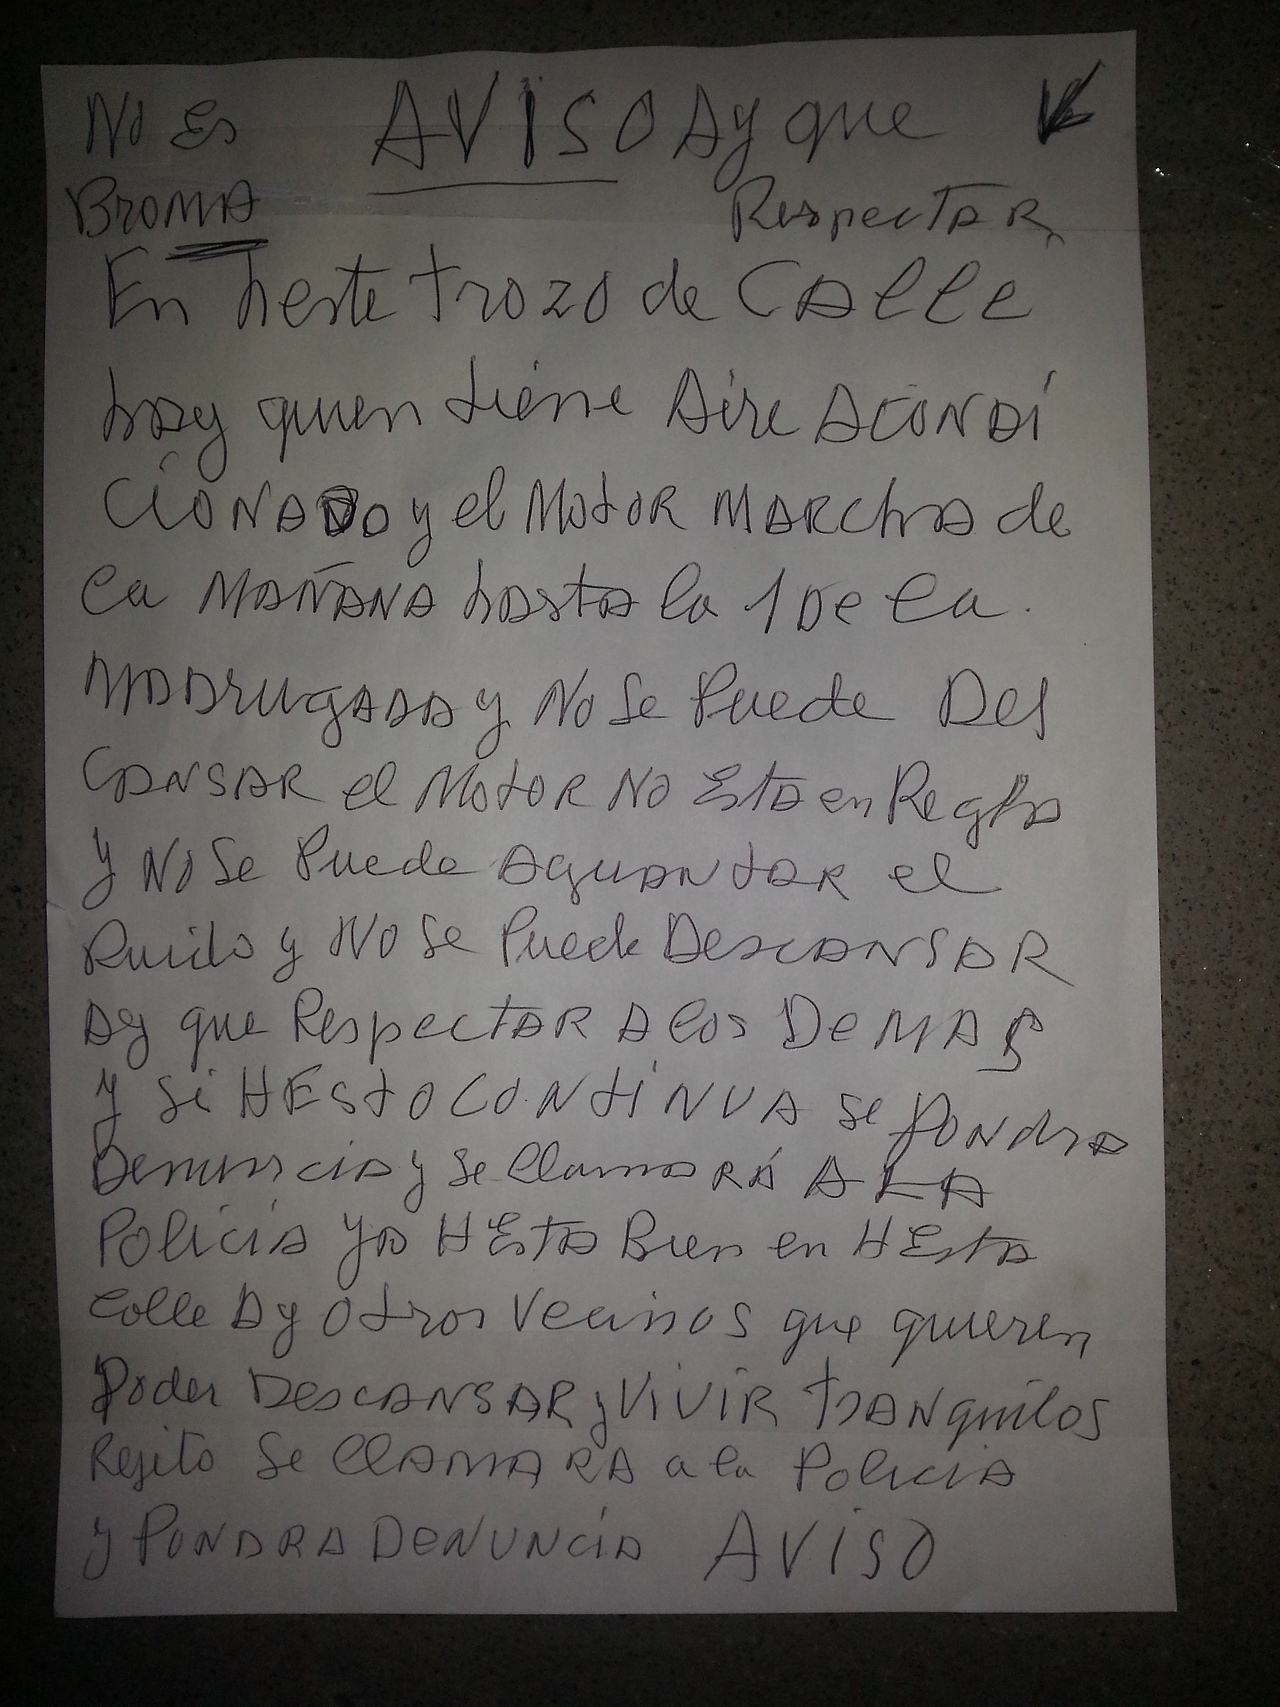 No Es AVISO Ay que
BROMA Respectar,
En heste trozo de CAlle
hay quien tiene Aire ACONDi
CiONADO y el MotoR MARCha de
la MAÑANA hasta la 1 De la.
MADRUgADA y No Se Puede Des
CANSAR el MotoR No EstA en Regla
y No Se Puede AguantAR el
Ruido y No Se Puede DescANSAR
Ay que RespectAR A los DeMAS
y Si HESTO CONtiNUA Se PONdra
Denuncia y Se llamaRÁ A LA
Policia ya HEstA Bien en HEsta
Calle Ay otros Vecinos que quieren
Poder DescANSAR y ViViR tranquilos
Rejito Se llAMARA a la Policia
y PONDRA DeNUNCiA AViSO